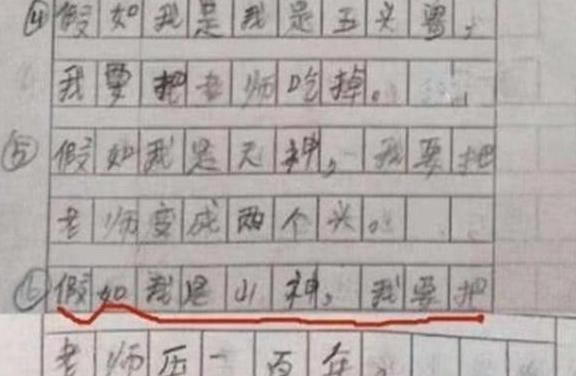 ④假如我是我是五头兽,
我要把老师吃掉。
⑤假如我是天神,我要把
老师变成两个头。
⑥假如我是山神,我要把
老师压一百年。